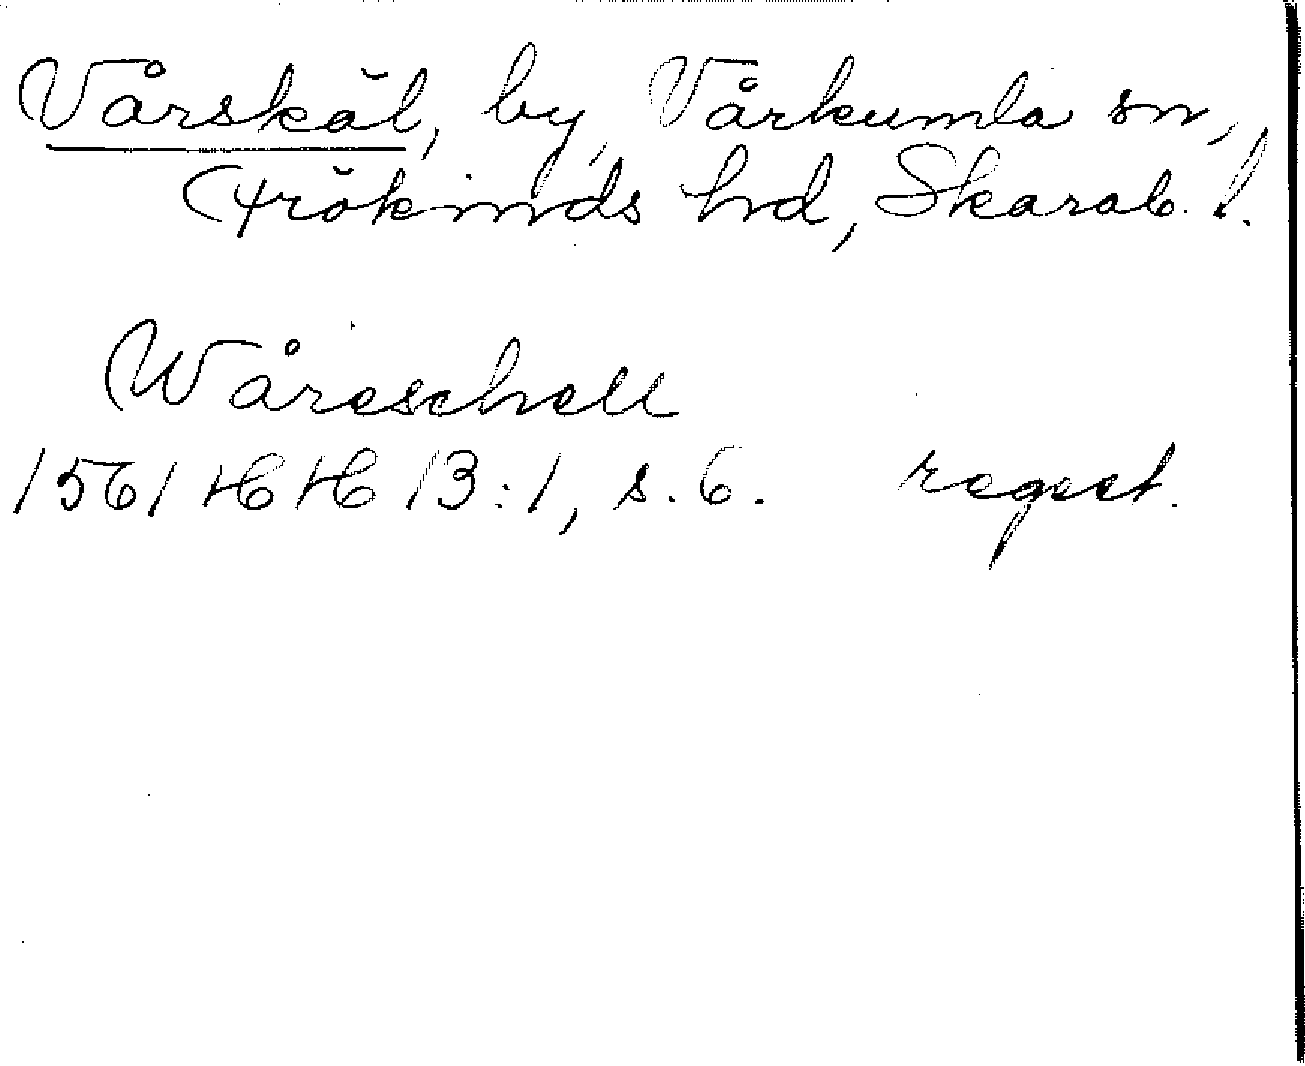 Vårskäl, by, Vårkumla sn,
Frökinds hd, Skarab. l.
Wåreschell
1561 HH 13:1, s. 6. regest.